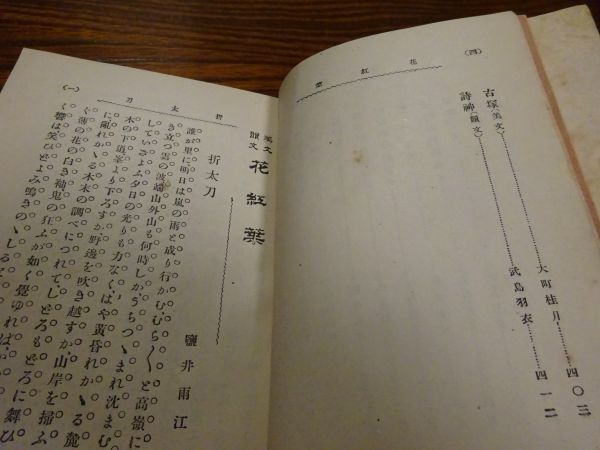 (四)
花紅葉
古塚(美文)……大町桂月……四〇三
詩神(韻文)……武島羽衣……四一二
折太刀
(一)
美文
韻文
花紅葉
折太刀
鹽井雨江
誰が里に明日は嵐の雨と成り行かむ、むら〳〵と高嶺に
き立つ雲の波、端山外山も何時しか、うちつゝまれ沈まむ
していさよふ夕日の光りも力なく、はや黄昏れかゝる麓
木の下道、峯より下ろすか、野邊を吹き越すか、山岸を掃ふ
に亂れかゝる木末の調べにつれて、しどろもどろに舞ひ
ぐ薄の花の白き袖、鬼の狂ふが如く覺ゆれば、
く響は笑ひどよみ鳴きのゝしる